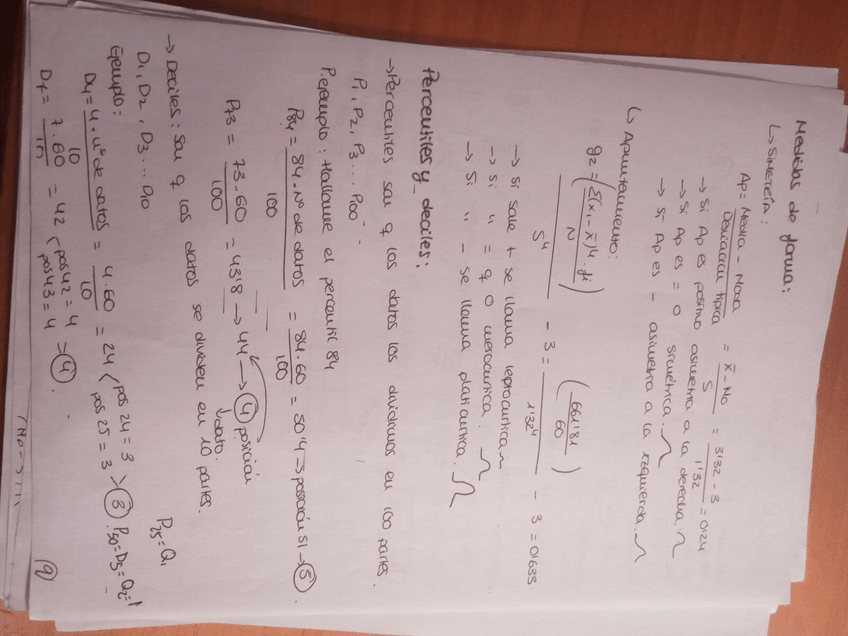 Medidas de forma:
↳ Simetría:
Ap = Media - Moda / Desviación típica = x̄ - Mo / S = 3'32 - 3 / 1'32 = 0'24
→ Si Ap es positivo asimetría a la derecha.
→ Si Ap es = 0 simétrica.
→ Si Ap es - asimetría a la izquierda.
↳ Apuntamiento:
g2 = (Σ(xi - x̄)⁴ · fi / N) / S⁴ - 3 = (661'81 / 60) / 1'32⁴ - 3 = 0'633
→ Si sale + se llama leptocurtica
→ si " = q 0 mesocurtica.
→ Si " - se llama platicurtica.
Percentiles y deciles:
→ Percentiles son q los datos los dividimos en 100 partes.
P1, P2, P3 ... P100
P.ejemplo: Hallame el percentil 84
P84 = 84 · Nº de datos / 100 = 84 · 60 / 100 = 50'4 → posición 51 → 5.
P73 = 73 · 60 / 100 = 43'8 → 44 → 4 posición
dato.
→ Deciles: Son q los datos se dividen en 10 partes.
D1, D2, D3 ... D10
P25 = Q1
Ejemplo:
D4 = 4 · nº de datos / 10 = 4 · 60 / 10 = 24 ( pos 24 = 3 pos 25 = 3 > 3 P50 = D5 = Q2 =
D7 = 7 · 60 / 10 = 42 ( pos 42 = 4 pos 43 = 4 = 4.